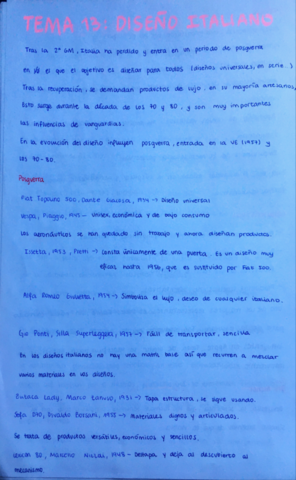 TEMA 13: DISEÑO ITALIANO
Tras la 2ª GM, Italia ha perdido y entra en un periodo de posguerra
en el que el objetivo es diseñar para todos (diseños universales, en serie...)
Tras la recuperación, se demandan productos de lujo, en su mayoría artesanos,
Esto surge durante la década de los 70 y 80, y son muy importantes
las influencias de vanguardias.
En la evolución del diseño influyen posguerra, entrada en la UE (1957) y
los 70-80.
Posguerra
Fiat Topolino 500, Dante Giacosa, → Diseño universal
Vespa, Piaggio, → Unisex económica y de bajo consumo
Los aeronáuticos se han quedado sin trabajo y ahora diseñan productos.
Isetta, 1953, → Consta únicamente de una puerta. Es un diseño muy
eficaz hasta 1956, que es sustituido por Fiat 500.
Alfa Romeo Giulietta, → Simboliza el lujo, deseo de cualquier italiano.
Gio Ponti, Silla Superleggera, → Fácil de transportar, sencilla
En los diseños italianos no hay una materia base así que recurren a mezclar
varios materiales en los diseños.
Marco Zanuso, 1951 → Tapa estructura, se sigue usando.
Sofá Osvaldo Borsani, → Materiales dignos y articulados.
Se trata de productos económicos y sencillos.
Marcello Nizzoli, → Destapa y deja al descubierto el
mecanismo